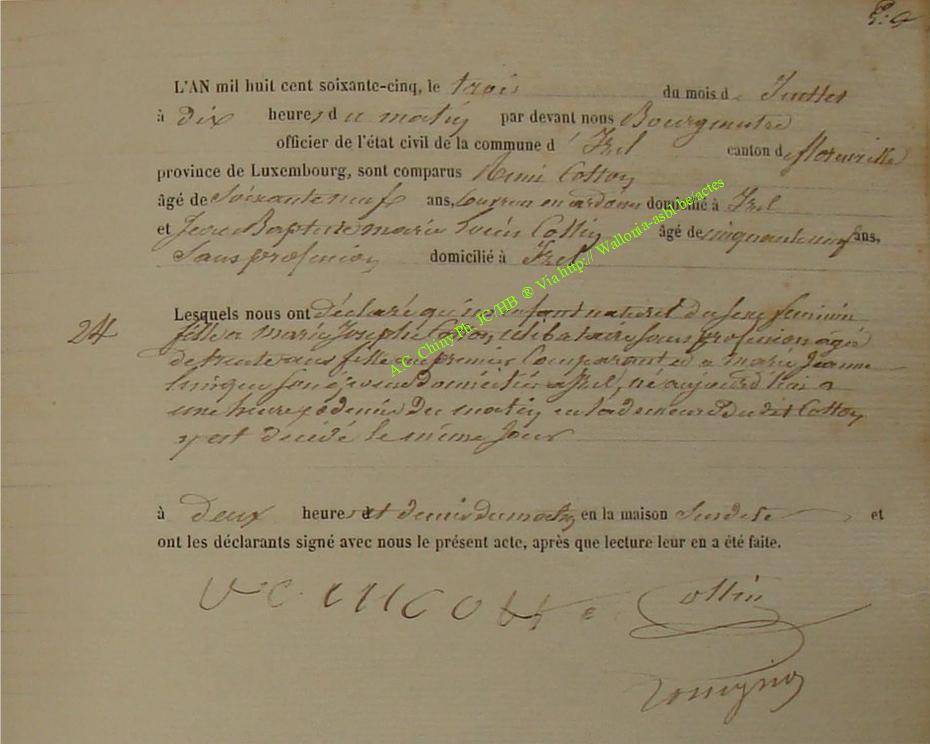 L'AN mil huit cent soixante-cinq, le trois du mois de Juillet
à dix heures du matin par devant nous Bourgmestre
officier de l'état civil de la commune d'Izel canton de florenville
province de Luxembourg, sont comparus Remi Cotton
âgé de Soixante neuf ans, ouvrier en ardoise domicilié à Izel
et Jean Baptiste marie Collin âgé de cinquante neuf ans,
Sans profession domicilié à Izel
24
Lesquels nous ont déclaré qu'un enfant naturel du sexe féminin
fille a marie Josephe Cotton célibataire sans profession agée
de trente ans fille au premier Comparant et a marie Jeanne
son epouse domiciliés a Izel, né aujourd'hui a
une heure & demie du matin en la demeure du dit Cotton
y est décédé le même Jour
à deux heures et demie du matin en la maison Susdite et
ont les déclarants signé avec nous le présent acte, après que lecture leur en a été faite.
Collin
A.C. Chiny Ph. JC/HB ® Via http:// Wallonia-asbl.be/actes